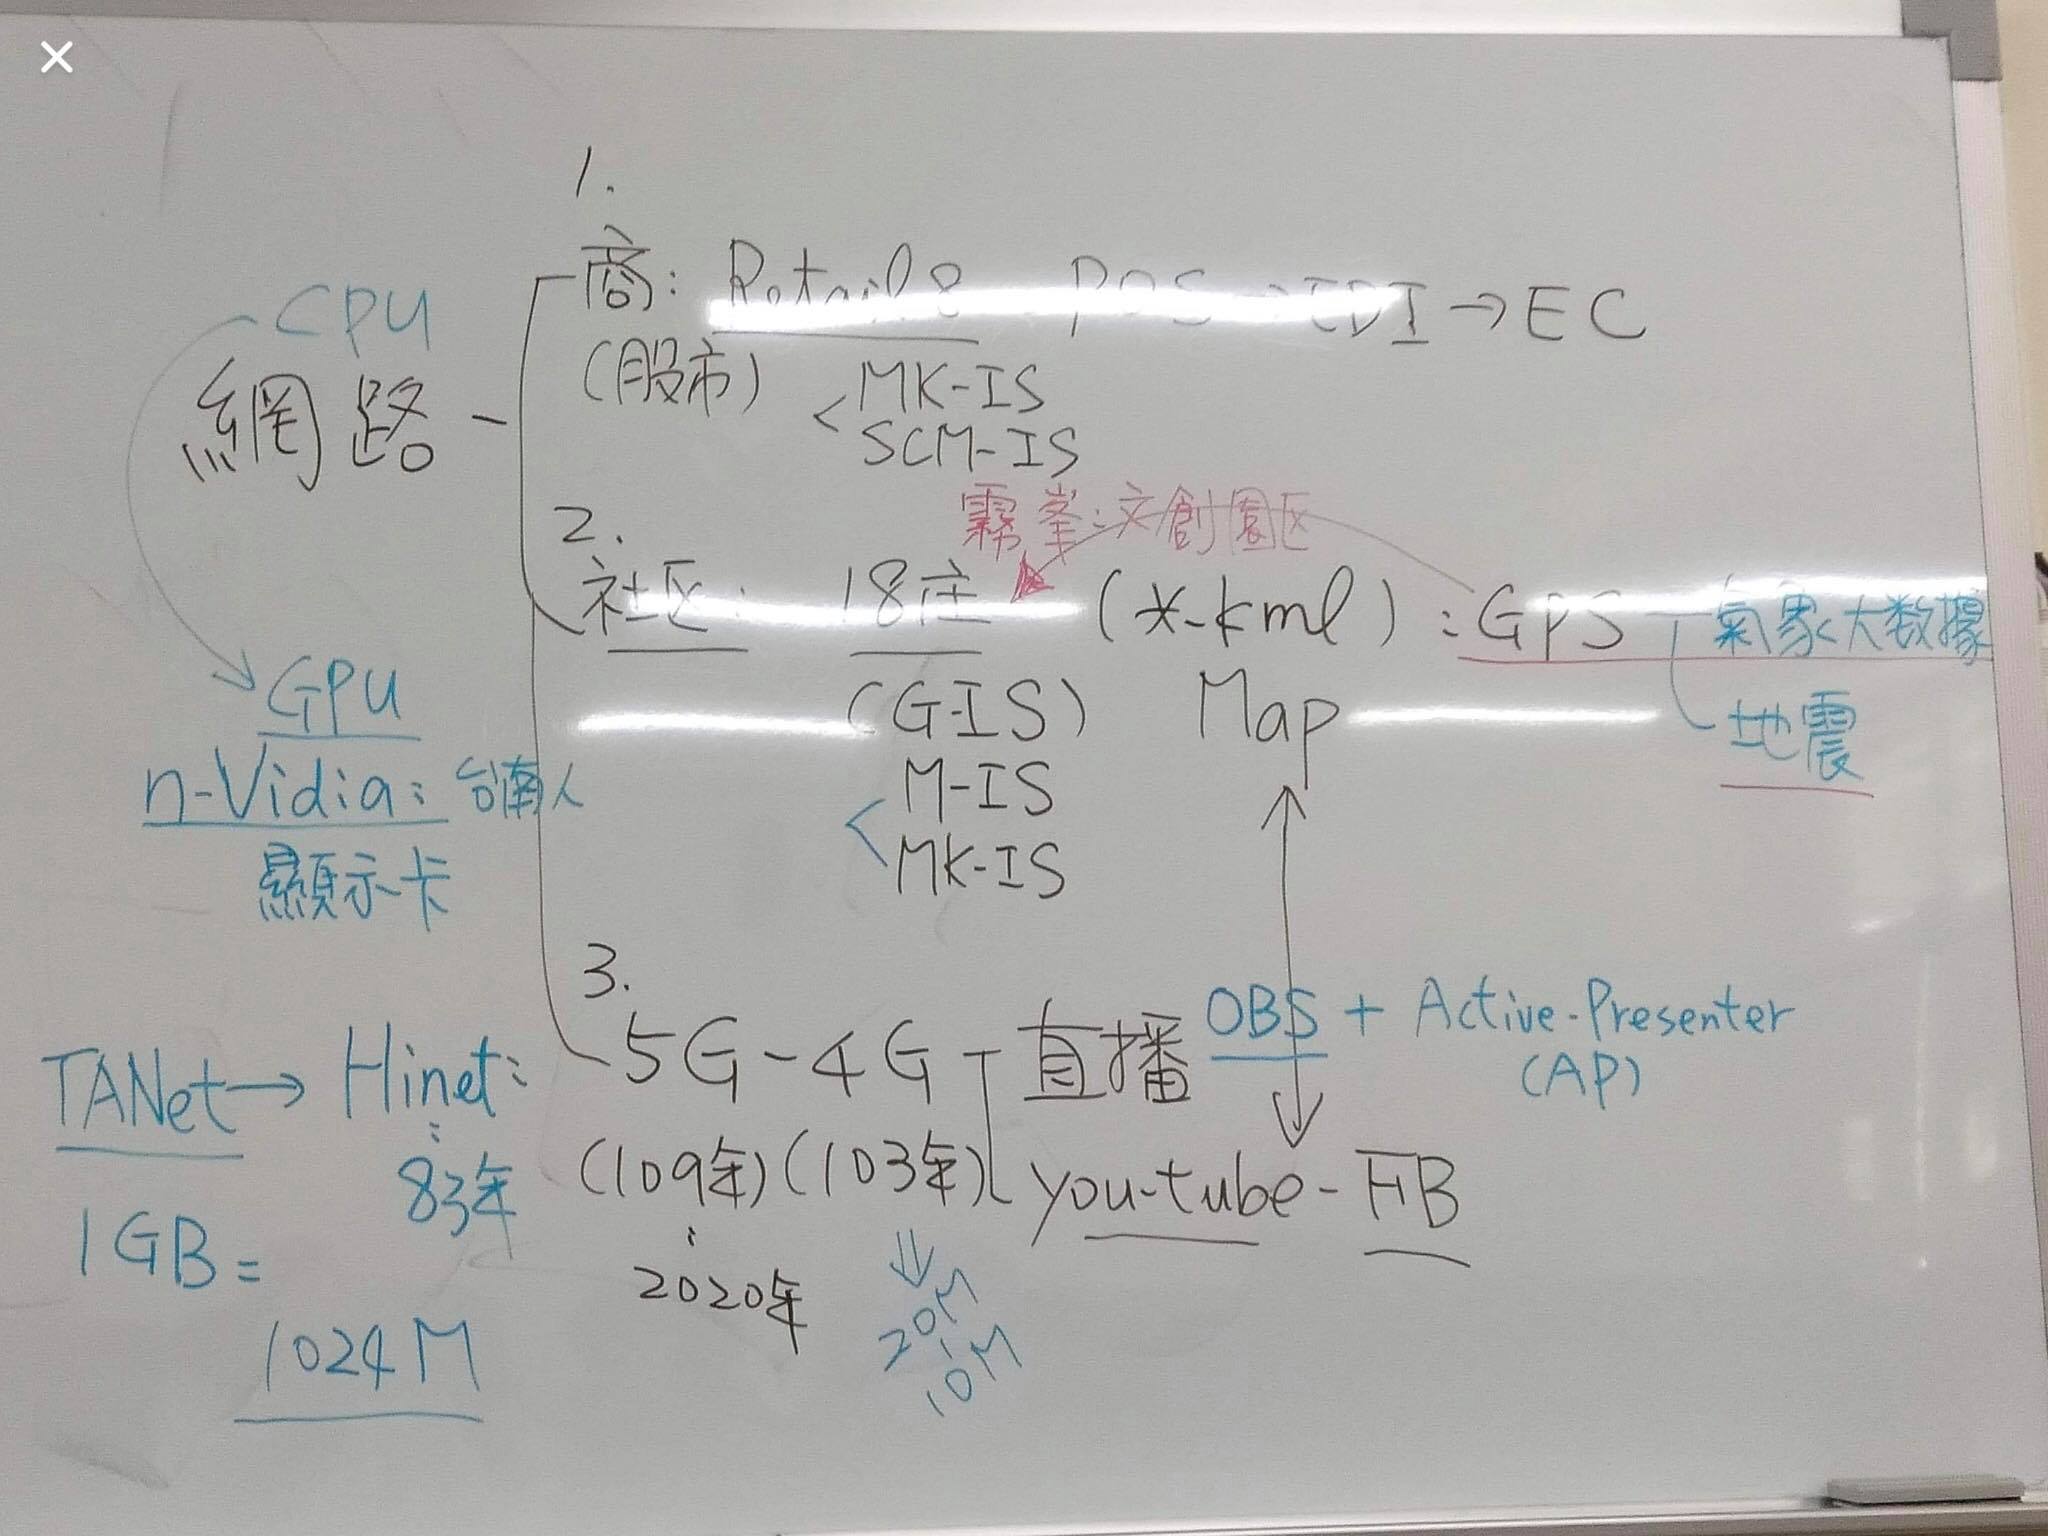 CPU
網路
1.
商: Retail 8 POS → EDI → EC
(股市) < MK-IS
SCM-IS
霧峯:文創園区
2.
社区: 18庄 (*.kml) : GPS 氣象大数據
地震
(G-IS) Map
< M-IS
MK-IS
GPU
n-Vidia: 台南人
顯示卡
3.
5G - 4G 直播 OBS + Active-Presenter
(AP)
(109年) (103年) you-tube - FB
:
2020年
⇓
20M
10M
TANet → Hinet:
:
83年
1GB =
1024M